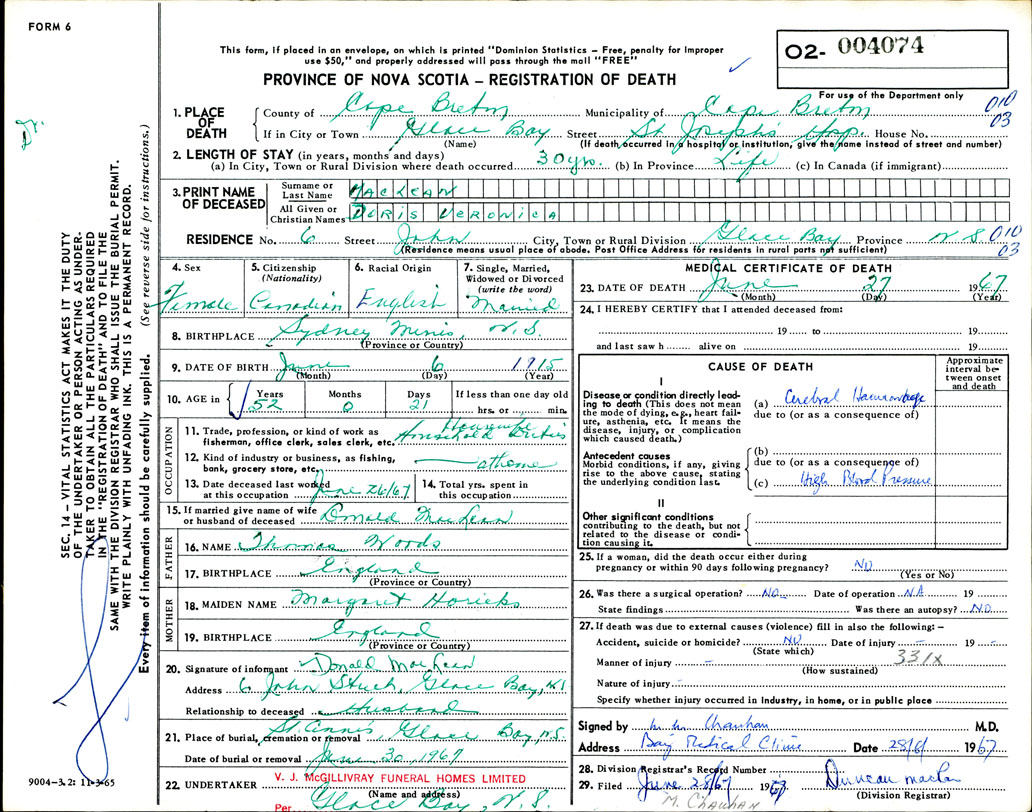 FORM 6
This form, if placed in an envelope, on which is printed "Dominion Statistics – Free, penalty for improper
use $50," and properly addressed will pass through the mail "FREE"
02- 004074
For use of the Department only
PROVINCE OF NOVA SCOTIA – REGISTRATION OF DEATH
010
03
1. PLACE OF DEATH
County of Cape Breton Municipality of Cape Breton
If in City or Town Glace Bay Street St Joseph's Hosp. House No.
(Name) (If death occurred in a hospital or institution, give the name instead of street and number)
2. LENGTH OF STAY (in years, months and days)
(a) In City, Town or Rural Division where death occurred 30 yrs. (b) In Province Life (c) In Canada (if immigrant)
3. PRINT NAME OF DECEASED
Surname or Last Name MacLEAN
All Given or Christian Names DORIS VERONICA
RESIDENCE No. 6 Street John City, Town or Rural Division Glace Bay Province N S 010
03
(Residence means usual place of abode. Post Office Address for residents in rural parts not sufficient)
4. Sex Female
5. Citizenship (Nationality) Canadian
6. Racial Origin English
7. Single, Married, Widowed or Divorced (write the word) Married
8. BIRTHPLACE Sydney Mines, N. S.
(Province or Country)
9. DATE OF BIRTH June 6 1915
(Month) (Day) (Year)
10. AGE in Years 52 Months 0 Days 21 If less than one day old hrs. or min.
OCCUPATION
11. Trade, profession, or kind of work as fisherman, office clerk, sales clerk, etc. Housewife
Household Duties
12. Kind of industry or business, as fishing, bank, grocery store, etc. at home
13. Date deceased last worked at this occupation June 26/67
14. Total yrs. spent in this occupation
15. If married give name of wife or husband of deceased Donald MacLean
FATHER
16. NAME Thomas Woods
17. BIRTHPLACE England
(Province or Country)
MOTHER
18. MAIDEN NAME Margaret
19. BIRTHPLACE England
(Province or Country)
20. Signature of informant Donald MacLean
Address 6 John Street, Glace Bay,
Relationship to deceased Husband
21. Place of burial, cremation or removal St. Anne's Glace Bay, N.S.
Date of burial or removal June 30, 1967
22. UNDERTAKER V. J. McGILLIVRAY FUNERAL HOMES LIMITED
(Name and address)
Per Glace Bay, N. S.
MEDICAL CERTIFICATE OF DEATH
23. DATE OF DEATH June 27 1967
(Month) (Day) (Year)
24. I HEREBY CERTIFY that I attended deceased from:
19 to 19
and last saw h alive on 19
CAUSE OF DEATH
Approximate interval between onset and death
I
Disease or condition directly leading to death (This does not mean the mode of dying, e.g., heart failure, asthenia, etc. It means the disease, injury, or complication which caused death.)
(a) Cerebral Haemorrhage
due to (or as a consequence of)
Antecedent causes
Morbid conditions, if any, giving rise to the above cause, stating the underlying condition last.
(b)
due to (or as a consequence of)
(c) High Blood Pressure
II
Other significant conditions
contributing to the death, but not related to the disease or condition causing it.
25. If a woman, did the death occur either during pregnancy or within 90 days following pregnancy? NO
(Yes or No)
26. Was there a surgical operation? NO Date of operation N.A 19
State findings Was there an autopsy? NO
27. If death was due to external causes (violence) fill in also the following: –
Accident, suicide or homicide? NO Date of injury – 19 –
(State which)
331X
Manner of injury –
(How sustained)
Nature of injury -
Specify whether injury occurred in industry, in home, or in public place
Signed by Chauhan M.D.
Address Bay Medical Clinic Date 28/6/ 1967
28. Division Registrar's Record Number
29. Filed June 28/67 1967 Duncan
M. Chauhan
(Division Registrar)
SEC. 14 – VITAL STATISTICS ACT MAKES IT THE DUTY
OF THE UNDERTAKER OR PERSON ACTING AS UNDER-
TAKER TO OBTAIN ALL THE PARTICULARS REQUIRED
IN THE "REGISTRATION OF DEATH" AND TO FILE THE
SAME WITH THE DIVISION REGISTRAR WHO SHALL ISSUE THE BURIAL PERMIT.
WRITE PLAINLY WITH UNFADING INK. THIS IS A PERMANENT RECORD.
Every item of information should be carefully supplied. (See reverse side for instructions.)
9004–3.2: 11-3-65